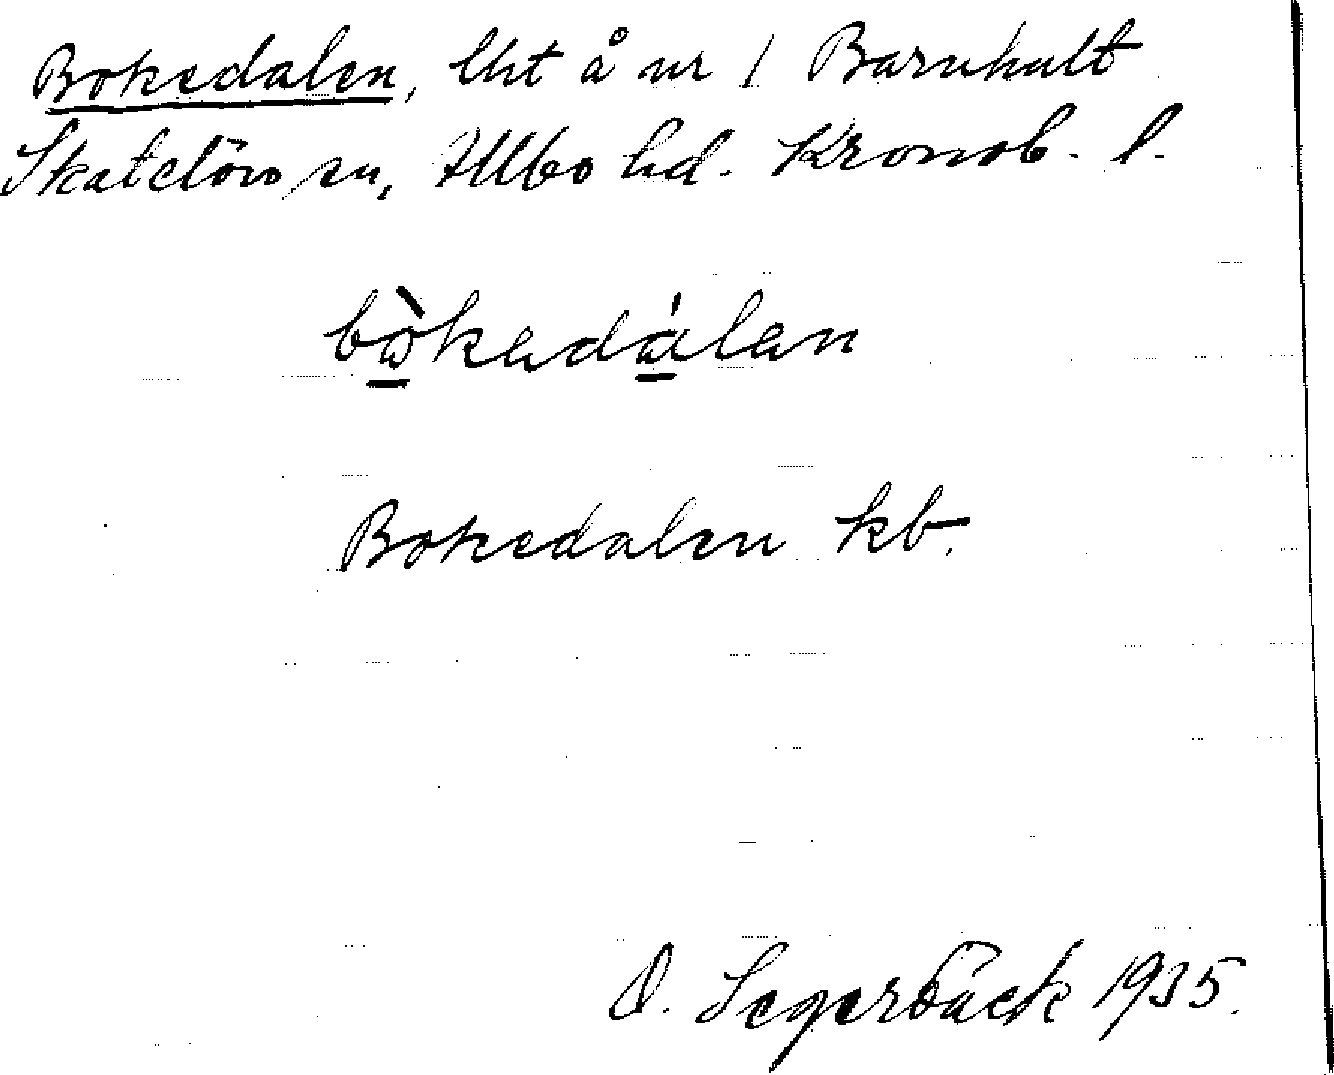 Bokedalen, lht å nr 1 Barnhult
Skatelövs sn, Allbo hd. Kronob. l.
bòkadálan
Bokedalen kb.
O. Segerbäck 1935.